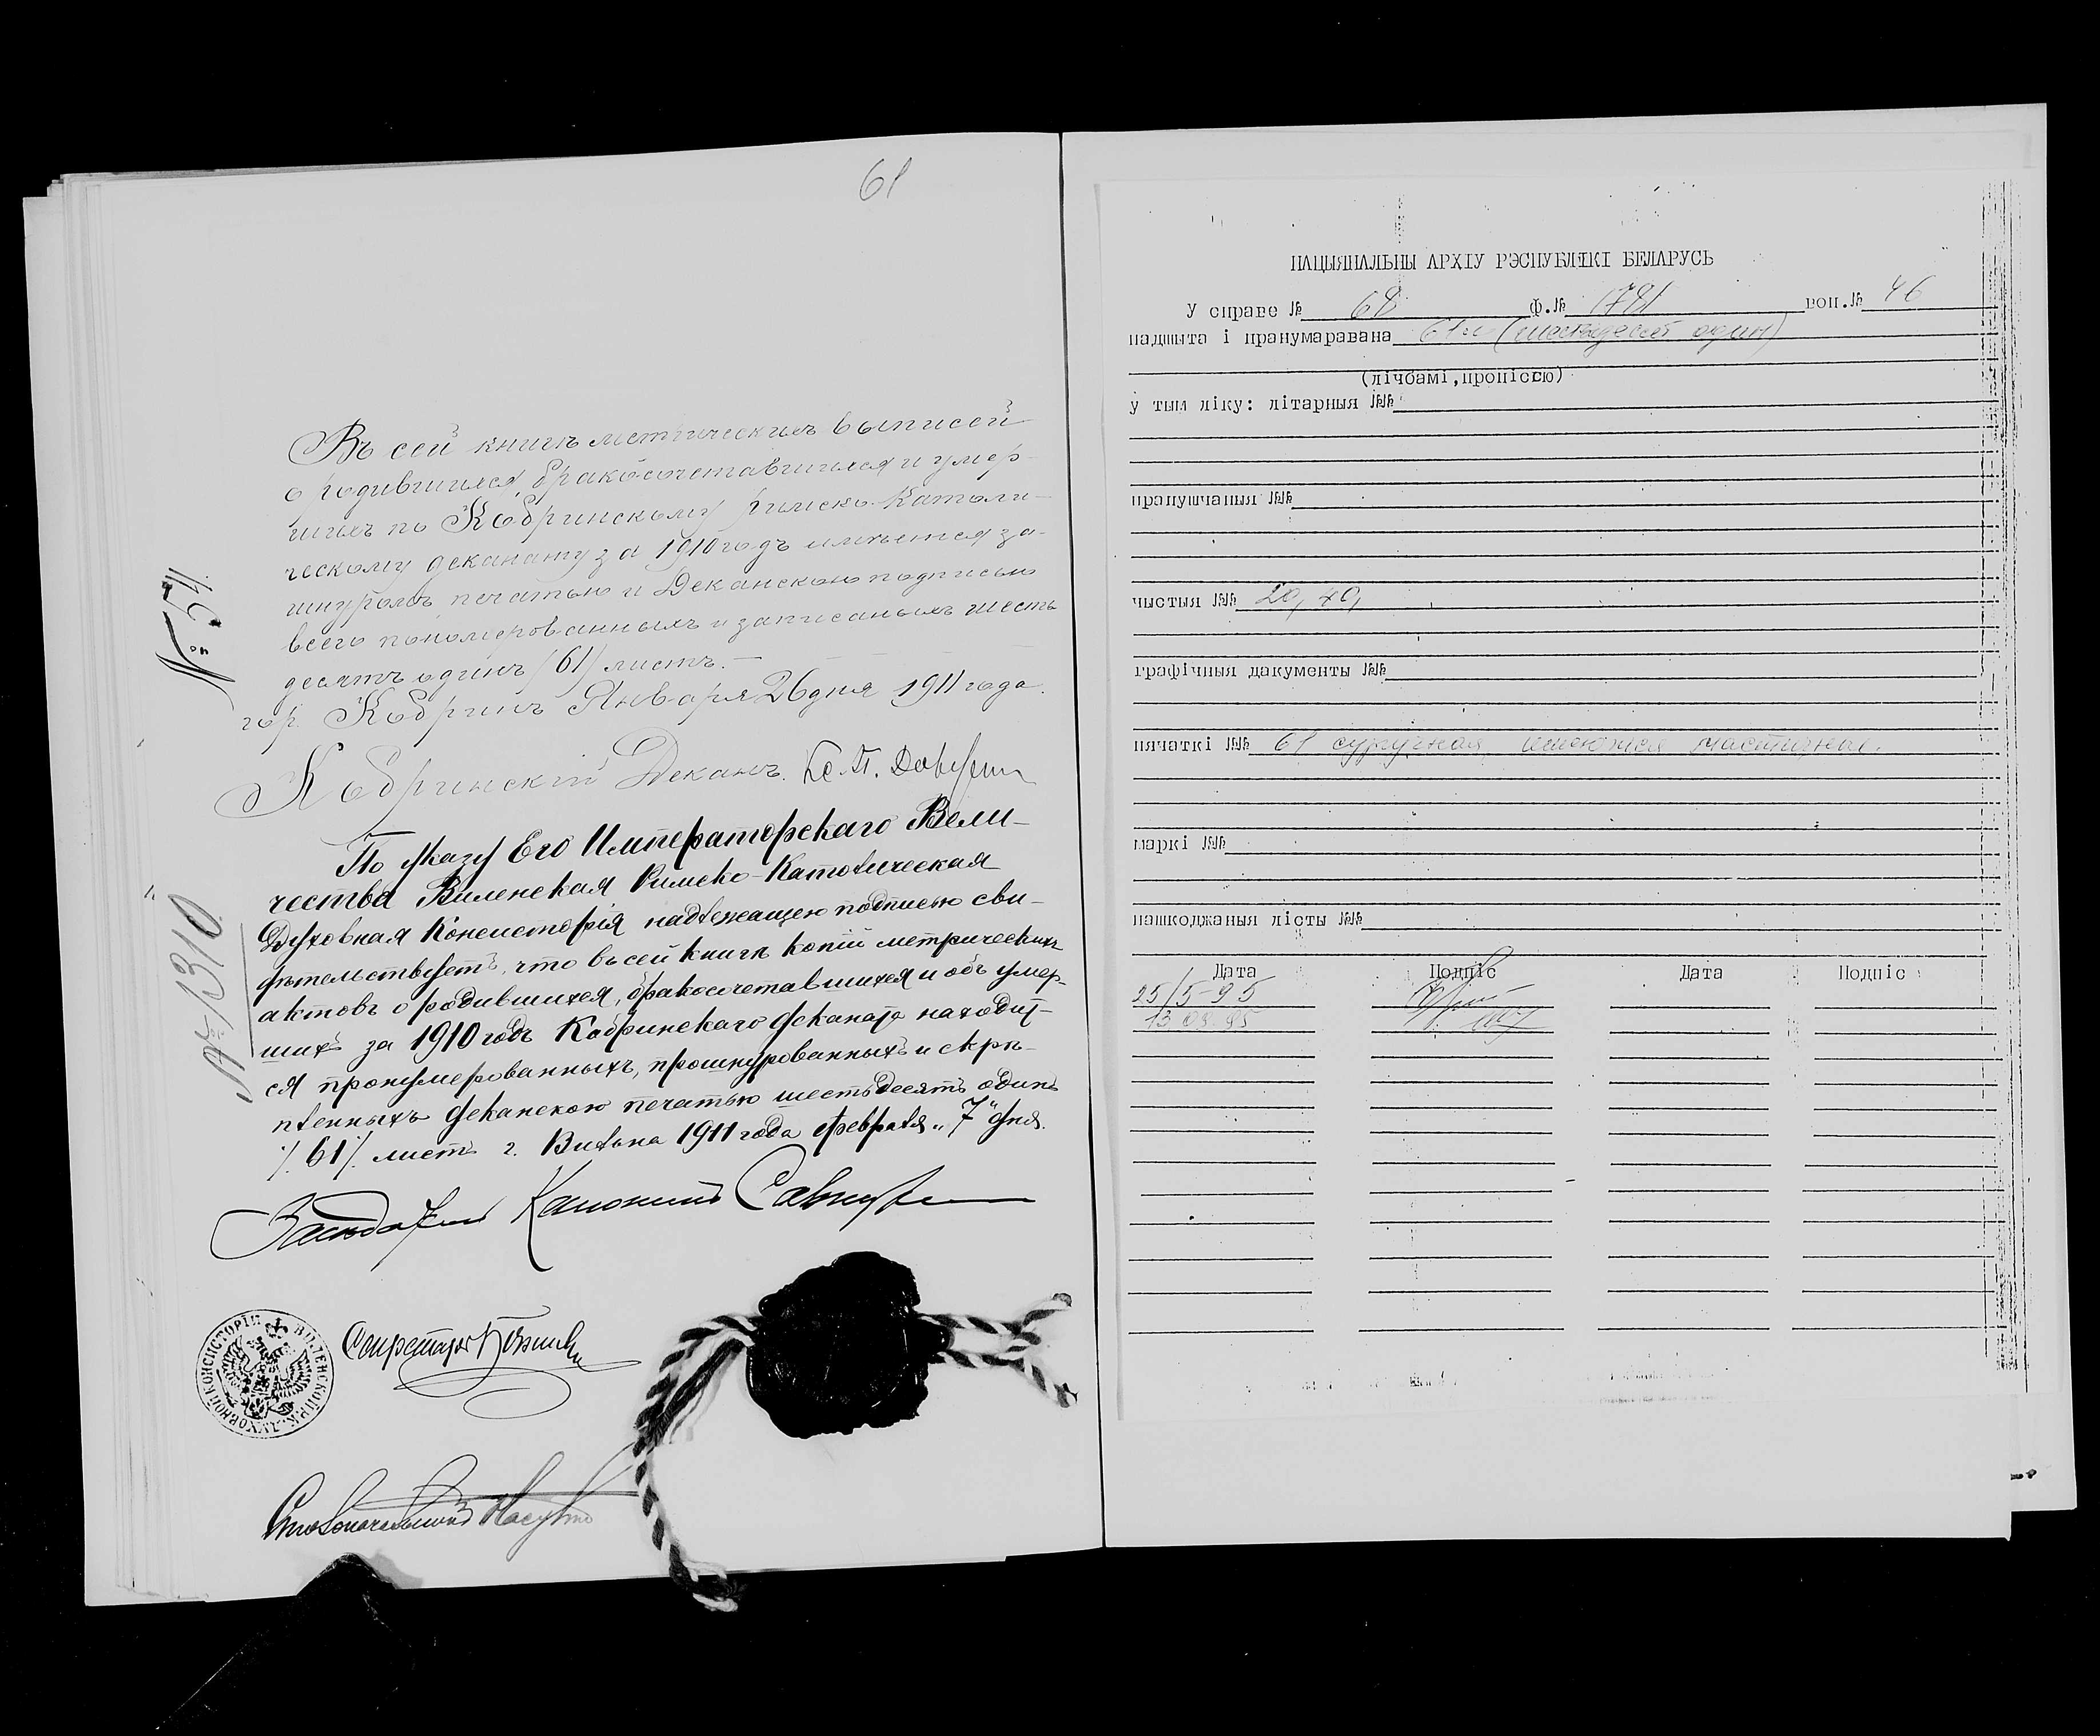 61
Въ сей книгѣ метрическихъ выписей
о родившихся бракосочетавшихся и умер-
шихъ по Кобринскому Римско-Католи-
ческому деканату за 1910 годъ имѣется за
шнуромъ печатью и Деканскою подписью
всего пономерованныхъ и записаныхъ шесть
десятъ одинъ /61/ листъ. —
гор. Кобринъ Января 26 дня 1911 года.
№ 54
Кобринскій Деканъ. Кс.
По указу Его Императорскаго Вели-
чества Виленская Римско-Католическая
Духовная Консисторія надлежащею подписью сви-
дѣтельствуетъ, что въ сей книгѣ копій метрическихъ
актовъ о родившихся, бракосочетавшихся и объ умер-
шихъ за 1910 годъ Кобринскаго деканата находит-
ся пронумерованныхъ, прошнурованныхъ и скрѣ-
пленныхъ деканскою печатью шестьдесятъ одинъ
/.61./ листъ г. Вильна 1911 года февраля „7" дня.
№ 1310
Засѣдатель Каноникъ
Секретарь
ВИЛЕНСКОЙ Р.К. ДУХОВНОЙ КОНСИСТОРІИ
Столоначальникъ
НАЦЫЯНАЛЬНЫ АРХІУ РЭСПУБЛІКІ БЕЛАРУСЬ
У справе № 68 ф.№ 1781 воп.№ 46
падшыта і пранумаравана 61 л (шестьдесят один)
(лічбамі,пропіссю)
у тым ліку: літарныя №№
прапушчаныя №№
чыстыя №№ 20, 40,
графічныя дакументы №№
пячаткі №№ 61 сургучная, имеются мастичная.
маркі №№
пашкоджаныя лісты №№
Дата Подпіс Дата Подпіс
25/5-95
13.09.95